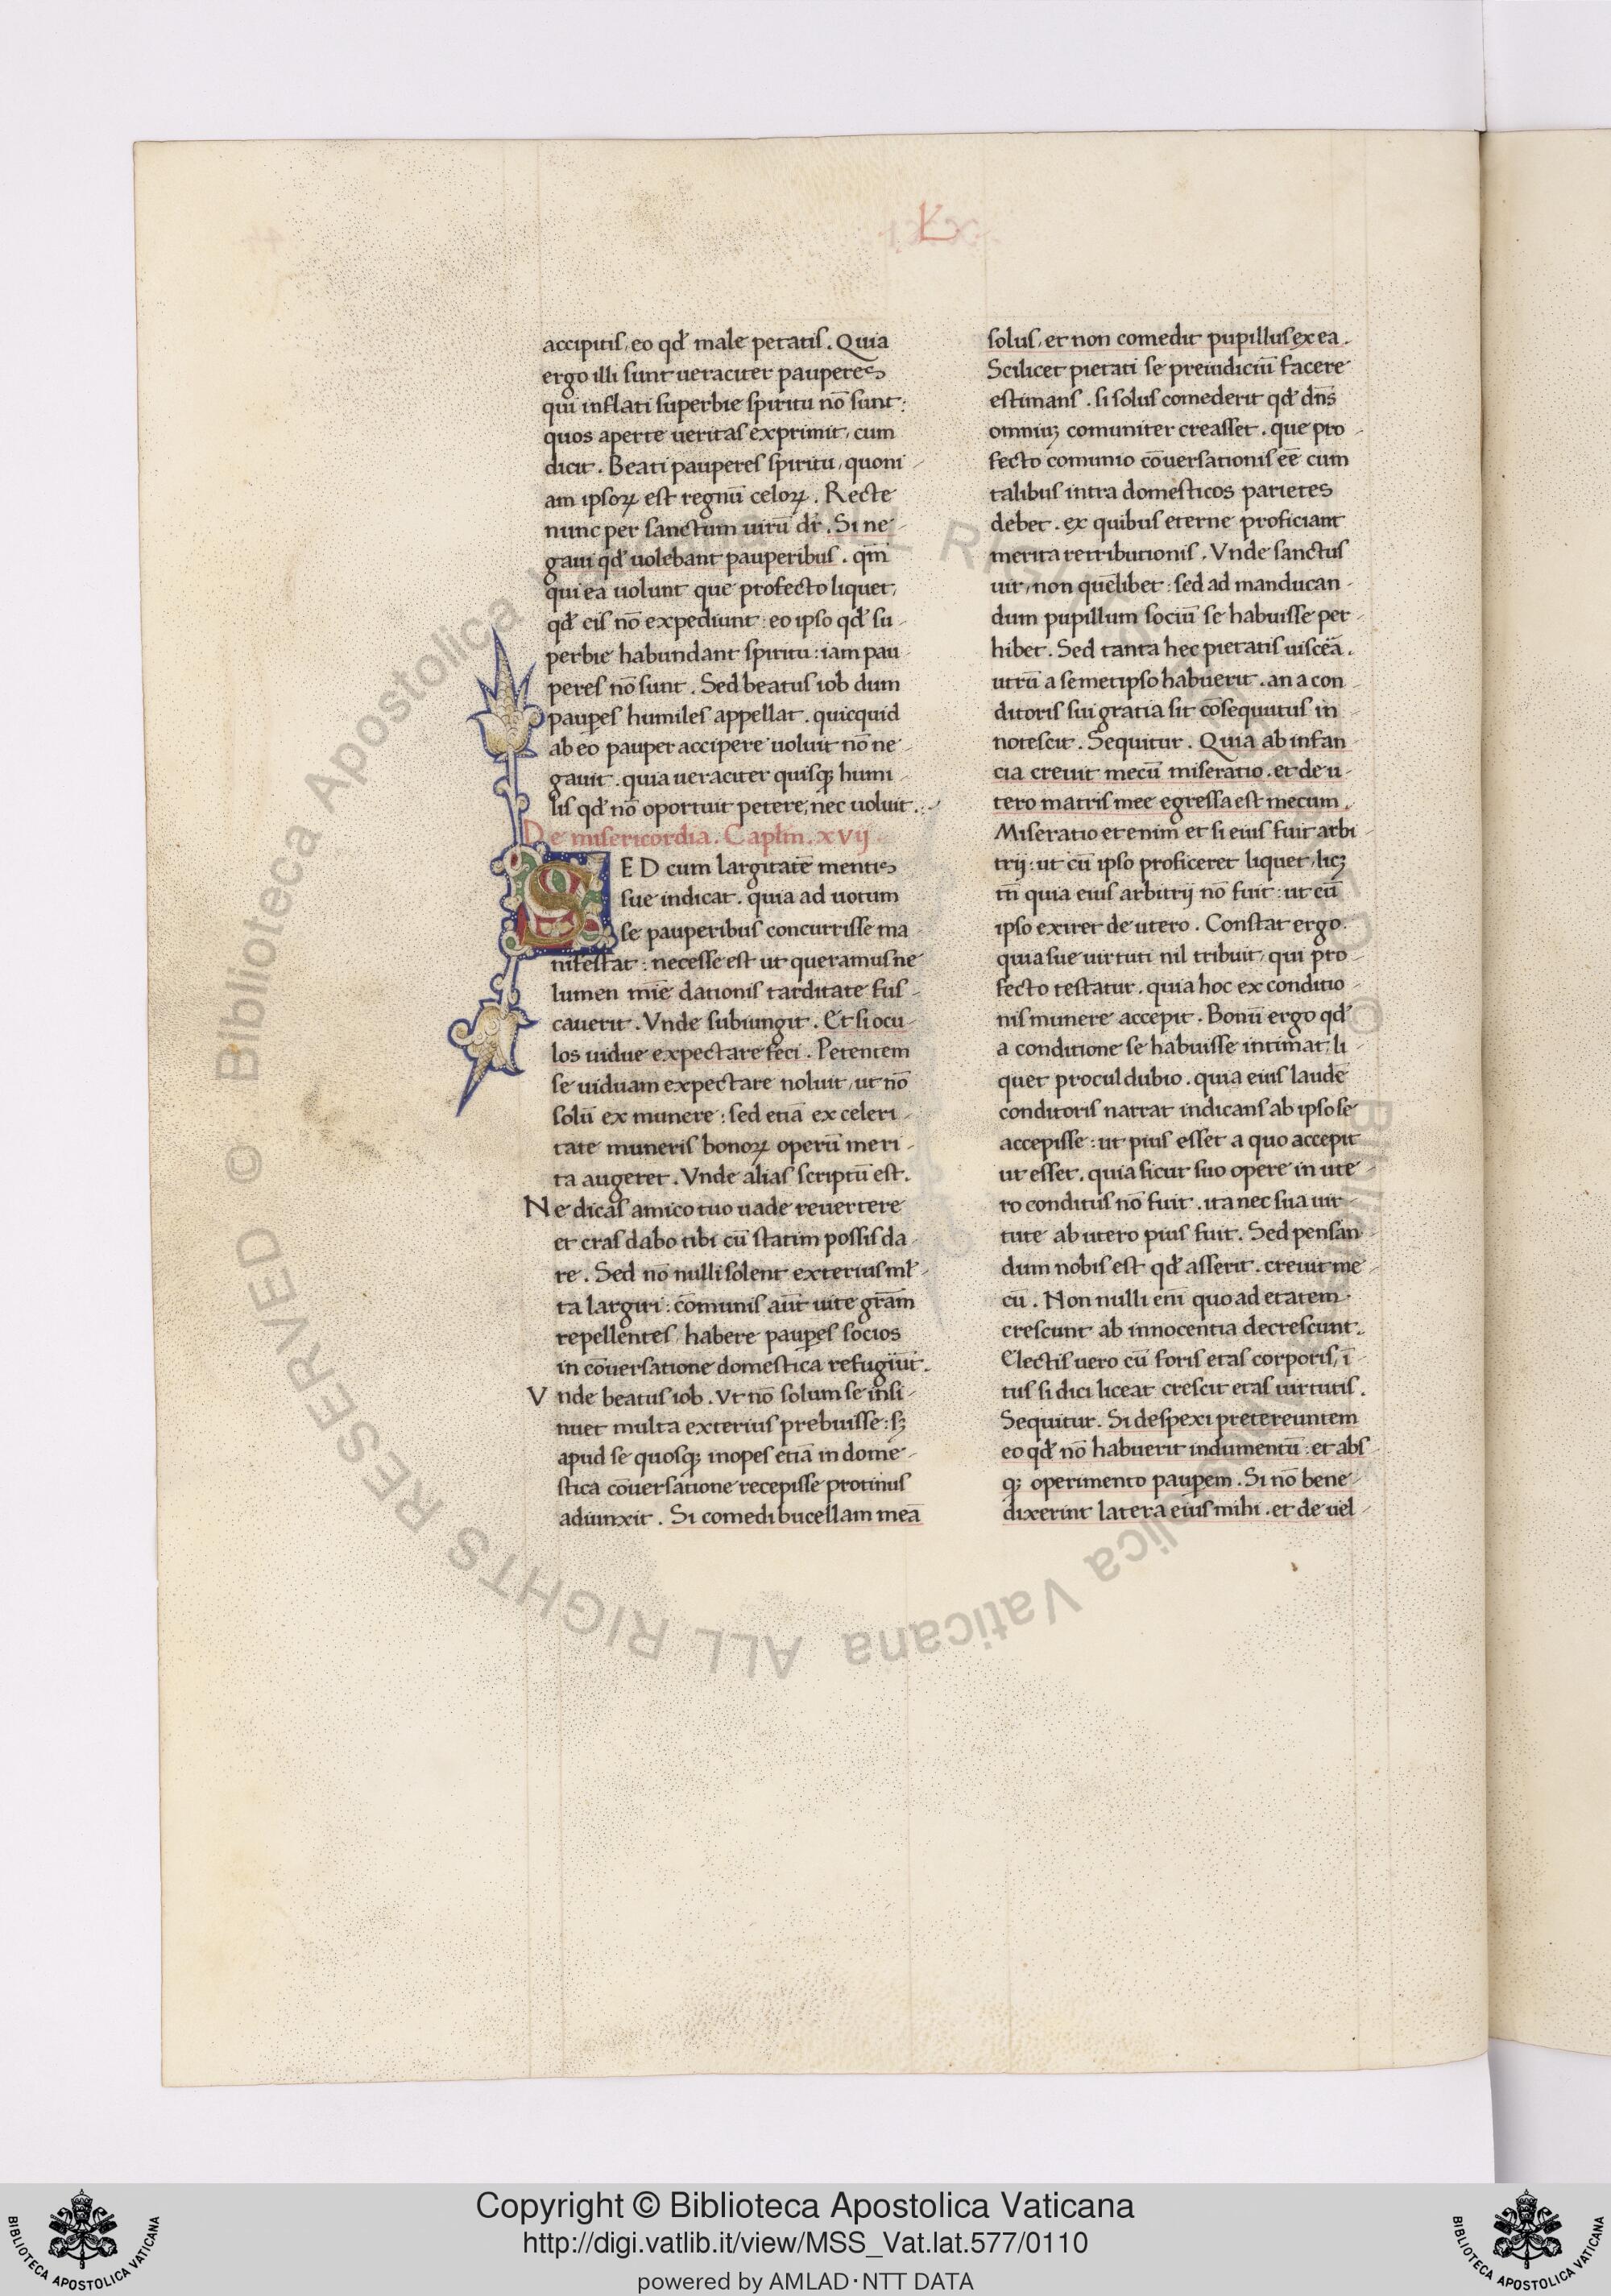 L
accipitis, eo qđ male petatis. Quia
ergo illi sunt ueraciter pauperes
qui inflati superbie spiritu nō sunt:
quos aperte ueritas exprimit, cum
dicit. Beati pauperes spiritu, quoni-
am ipsoꝝ est regnū celoꝝ. Recte
nunc per sanctum uirū dr̄. Si ne-
gaui qđ uolebant pauperibus. qm̄
qui ea uolunt que profecto liquet,
qđ eis nō expediunt: eo ipso qđ su-
perbie habundant spiritu: iam pau-
peres nō sunt. Sed beatus iob dum
paup̲es humiles appellat. quicquid
ab eo pauper accipere uoluit nō ne-
gauit. quia ueraciter quisqꝫ humi-
lis qđ nō oportuit petere, nec uoluit.
De misericordia. Caplm̄. xvij
SED cum largitatē mentis
sue indicat. quia ad uotum
se pauperibus concurrisse ma
nifestat: necesse est ut queramus ne
lumen mīe dationis tarditate fus-
cauerit. Vnde subiungit. Et si ocu-
los uidue expectare feci. Petentem
se uiduam expectare noluit, ut nō
solū ex munere: sed etiā ex celeri-
tate muneris bonoꝝ operū meri-
ta augeret. Vnde alias scriptū est.
Ne dicas amico tuo uade reuertere
et cras dabo tibi cū statim possis da-
re. Sed nō nulli solent exterius ml̄-
ta largiri: cōmunis aūt uite gr̄am
repellentes, habere paup̲es socios
in cōuersatione domestica refugiūt.
Vnde beatus iob. Vt nō solum se insi-
nuet multa exterius prebuisse: sꝫ
apud se quosqꝫ inopes etiā in dome-
stica cōuersatione recepisse protinus
adiunxit. Si comedi bucellam meā
solus, et non comedit pupillus ex ea.
Scilicet pietati se preiudiciū facere
estimans. si solus comederit qđ dn̄s
omniuꝫ comuniter creasset. que pro-
fecto comunio cōuersationis eē cum
talibus intra domesticos parietes
debet. ex quibus eterne proficiant
merita retributionis. Vnde sanctus
uir, non quēlibet: sed ad manducan-
dum pupillum sociū se habuisse per-
hibet. Sed tanta hec pietatis uiscēa.
utrū a semetipso habuerit. an a con-
ditoris sui gratia sit cōsequutus in-
notescit. Sequitur. Quia ab infan-
cia creuit mecū miseratio. et de u-
tero matris mee egressa est mecum.
Miseratio etenim et si eius fuit arbi-
trij: ut cū ipso proficeret liquet, licꝫ
tn̄ quia eius arbitrij nō fuit: ut cū
ipso exiret de utero. Constat ergo
quia sue uirtuti nil tribuit, qui pro-
fecto testatur. quia hoc ex conditio-
nis munere accepit. Bonū ergo qđ
a conditione se habuisse intimat: li-
quet procul dubio. quia eius laude
conditoris narrat indicans ab ipso se
accepisse: ut pius esset a quo accepit
ut esset. quia sicut suo opere in ute-
ro conditus nō fuit. ita nec sua uir-
tute ab utero pius fuit. Sed pensan-
dum nobis est qđ asserit. creuit me-
cū. Non nulli enī quo ad etatem
crescunt ab innocentia decrescunt.
Electis uero cū foris etas corporis, ī-
tus si dici liceat crescit etas uirtutis.
Sequitur. Si despexi pretereuntem
eo qđ nō habuerit indumentū: et abs-
qꝫ operimento paup̲em. Si nō bene-
dixerint latera eius mihi. et de uel-
© Biblioteca Apostolica Vaticana ALL RIGHTS RESERVED
Copyright © Biblioteca Apostolica Vaticana
http://digi.vatlib.it/view/MSS_Vat.lat.577/0110
powered by AMLAD·NTT DATA
BIBLIOTECA APOSTOLICA VATICANA
BIBLIOTECA APOSTOLICA VATICANA